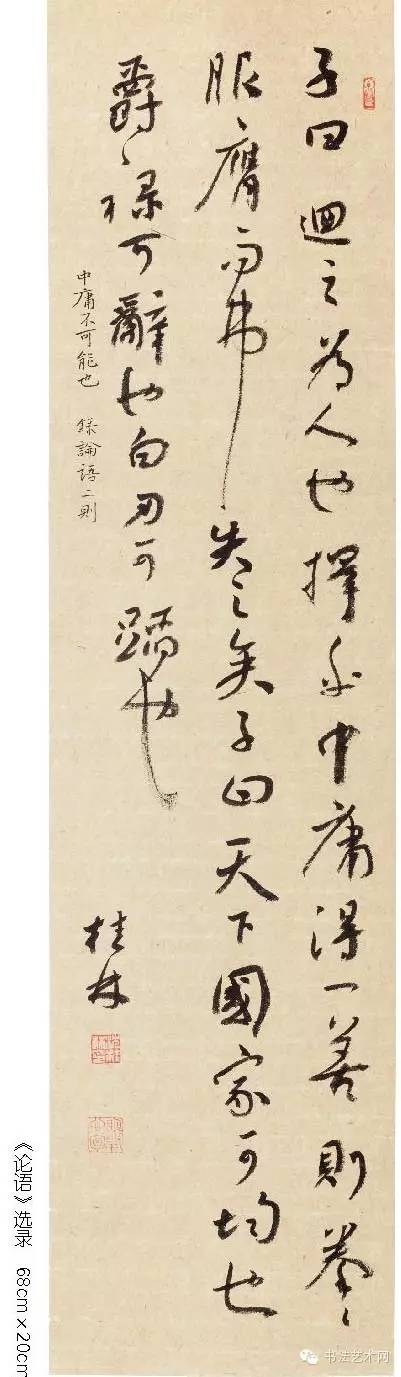 子曰迴之為人也擇乎中庸得一善則拳〻
服膺而弗失之矣子曰天下國家可均也
爵祿可辭也白刃可蹈也
中庸不可能也 錄論語二則
桂林
《论语》选录 68cm×20cm
书法艺术网